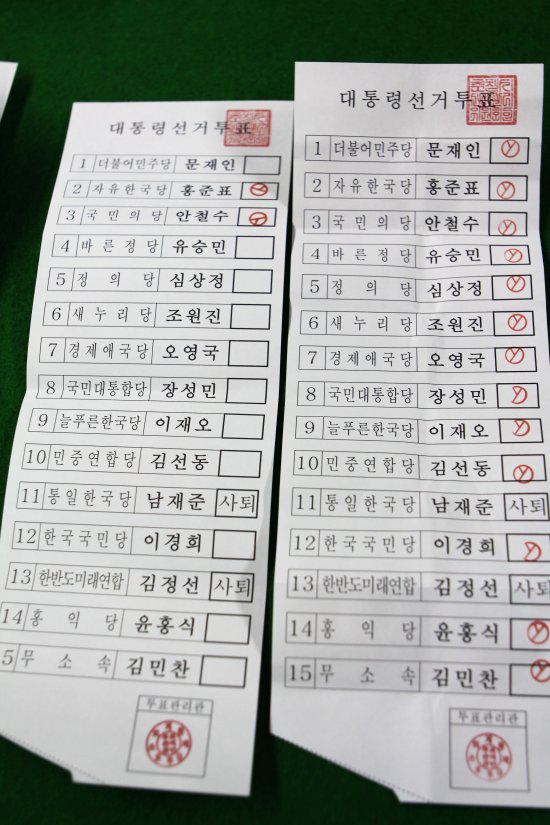 대통령선거투표
1 더불어민주당 문재인
2 자유한국당 홍준표
3 국민의당 안철수
4 바른정당 유승민
5 정의당 심상정
6 새누리당 조원진
7 경제애국당 오영국
8 국민대통합당 장성민
9 늘푸른한국당 이재오
10 민중연합당 김선동
11 통일한국당 남재준 사퇴
12 한국국민당 이경희
13 한반도미래연합 김정선 사퇴
14 홍익당 윤홍식
5 무소속 김민찬
투표관리관
대통령선거투표
1 더불어민주당 문재인
2 자유한국당 홍준표
3 국민의당 안철수
4 바른정당 유승민
5 정의당 심상정
6 새누리당 조원진
7 경제애국당 오영국
8 국민대통합당 장성민
9 늘푸른한국당 이재오
10 민중연합당 김선동
11 통일한국당 남재준 사퇴
12 한국국민당 이경희
13 한반도미래연합 김정선 사퇴
14 홍익당 윤홍식
15 무소속 김민찬
투표관리관